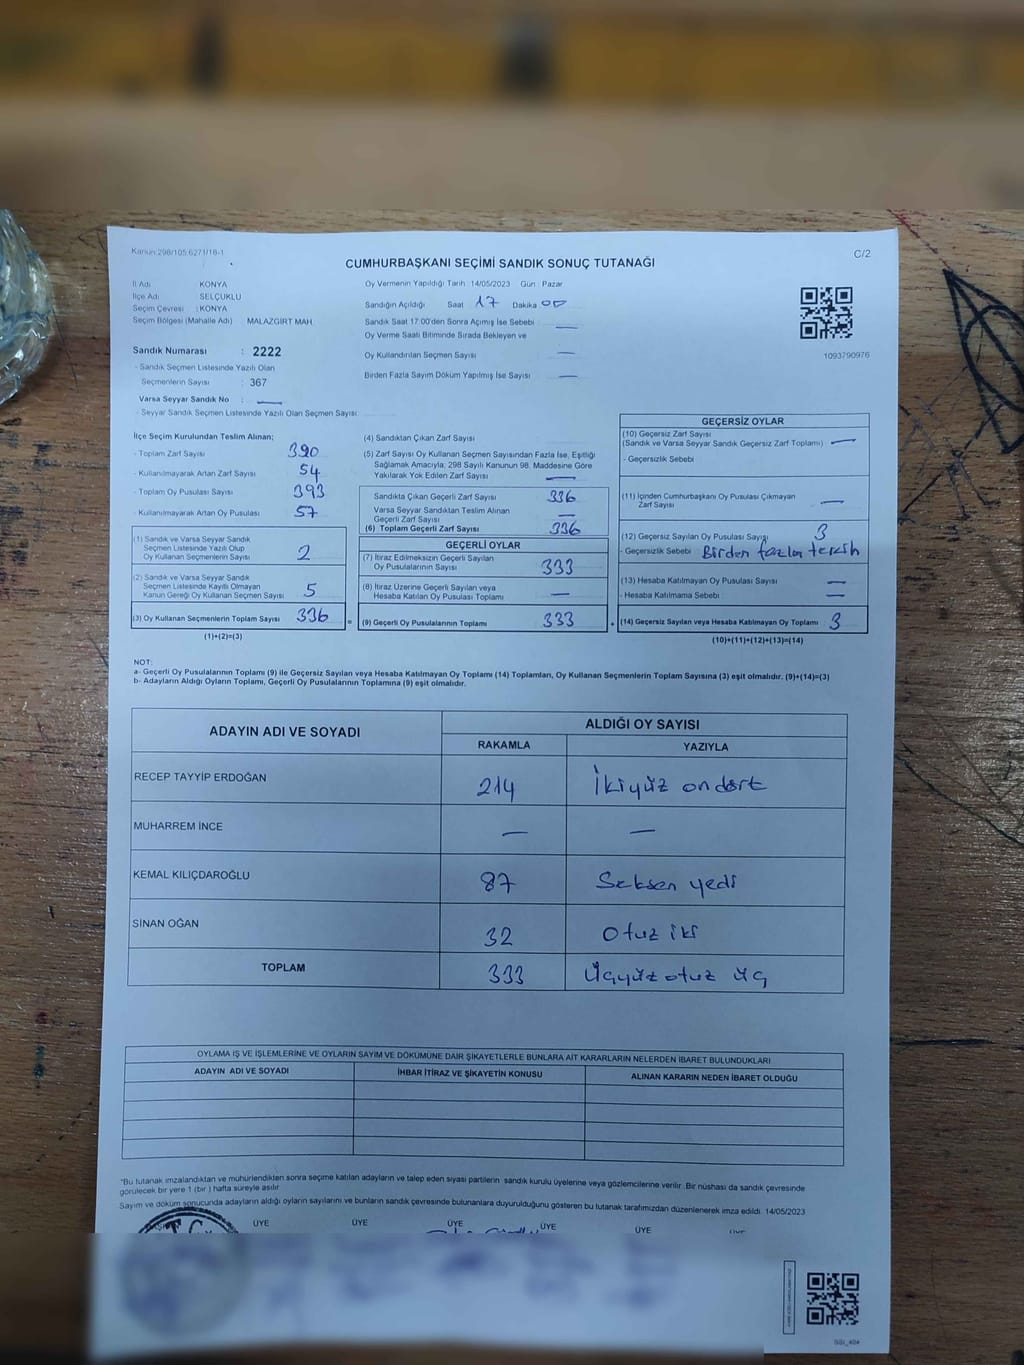 Kanun:298/105,6271/18-1
C/2
CUMHURBAŞKANI SEÇİMİ SANDIK SONUÇ TUTANAĞI
İl Adı KONYA
İlçe Adı SELÇUKLU
Seçim Çevresi : KONYA
Seçim Bölgesi (Mahalle Adı) MALAZGİRT MAH.
Sandık Numarası : 2222
- Sandık Seçmen Listesinde Yazılı Olan
Seçmenlerin Sayısı : 367
Varsa Seyyar Sandık No : —
- Seyyar Sandık Seçmen Listesinde Yazılı Olan Seçmen Sayısı:
Oy Vermenin Yapıldığı Tarih : 14/05/2023 Gün : Pazar
Sandığın Açıldığı Saat 17 Dakika 00
Sandık Saat 17:00'den Sonra Açımış İse Sebebi —
Oy Verme Saati Bitiminde Sırada Bekleyen ve
Oy Kullandırılan Seçmen Sayısı —
Birden Fazla Sayım Döküm Yapılmış İse Sayısı —
1093790976
İlçe Seçim Kurulundan Teslim Alınan;
- Toplam Zarf Sayısı 390
- Kullanılmayarak Artan Zarf Sayısı 54
- Toplam Oy Pusulası Sayısı 393
- Kullanılmayarak Artan Oy Pusulası 57
(1) Sandık ve Varsa Seyyar Sandık
Seçmen Listesinde Yazılı Olup
Oy Kullanan Seçmenlerin Sayısı 2
(2) Sandık ve Varsa Seyyar Sandık
Seçmen Listesinde Kayıtlı Olmayan
Kanun Gereği Oy Kullanan Seçmen Sayısı 5
(3) Oy Kullanan Seçmenlerin Toplam Sayısı 336
(1)+(2)=(3)
(4) Sandıktan Çıkan Zarf Sayısı
(5) Zarf Sayısı Oy Kullanan Seçmen Sayısından Fazla İse, Eşitliği
Sağlamak Amacıyla; 298 Sayılı Kanunun 98. Maddesine Göre
Yakılarak Yok Edilen Zarf Sayısı —
Sandıkta Çıkan Geçerli Zarf Sayısı 336
Varsa Seyyar Sandıktan Teslim Alınan
Geçerli Zarf Sayısı —
(6) Toplam Geçerli Zarf Sayısı 336
GEÇERLİ OYLAR
(7) İtiraz Edilmeksizin Geçerli Sayılan
Oy Pusulalarının Sayısı 333
(8) İtiraz Üzerine Geçerli Sayılan veya
Hesaba Katılan Oy Pusulası Toplamı —
(9) Geçerli Oy Pusulalarının Toplamı 333
GEÇERSİZ OYLAR
(10) Geçersiz Zarf Sayısı
(Sandık ve Varsa Seyyar Sandık Geçersiz Zarf Toplamı) —
- Geçersizlik Sebebi
(11) İçinden Cumhurbaşkanı Oy Pusulası Çıkmayan
Zarf Sayısı —
(12) Geçersiz Sayılan Oy Pusulası Sayısı 3
- Geçersizlik Sebebi Birden fazla tercih
(13) Hesaba Katılmayan Oy Pusulası Sayısı —
- Hesaba Katılmama Sebebi —
(14) Geçersiz Sayılan veya Hesaba Katılmayan Oy Toplamı 3
(10)+(11)+(12)+(13)=(14)
NOT:
a- Geçerli Oy Pusulalarının Toplamı (9) ile Geçersiz Sayılan veya Hesaba Katılmayan Oy Toplamı (14) Toplamları, Oy Kullanan Seçmenlerin Toplam Sayısına (3) eşit olmalıdır. (9)+(14)=(3)
b- Adayların Aldığı Oyların Toplamı, Geçerli Oy Pusulalarının Toplamına (9) eşit olmalıdır.
ADAYIN ADI VE SOYADI ALDIĞI OY SAYISI
RAKAMLA YAZIYLA
RECEP TAYYİP ERDOĞAN 214 İkiyüz ondört
MUHARREM İNCE — —
KEMAL KILIÇDAROĞLU 87 Seksen yedi
SİNAN OĞAN 32 Otuz iki
TOPLAM 333 Üçyüz otuz üç
OYLAMA İŞ VE İŞLEMLERİNE VE OYLARIN SAYIM VE DÖKÜMÜNE DAİR ŞİKAYETLERLE BUNLARA AİT KARARLARIN NELERDEN İBARET BULUNDUKLARI
ADAYIN ADI VE SOYADI İHBAR İTİRAZ VE ŞİKAYETİN KONUSU ALINAN KARARIN NEDEN İBARET OLDUĞU
*Bu tutanak imzalandıktan ve mühürlendikten sonra seçime katılan adayların ve talep eden siyasi partilerin sandık kurulu üyelerine veya gözlemcilerine verilir. Bir nüshası da sandık çevresinde
görülecek bir yere 1 (bir) hafta süreyle asılır.
Sayım ve döküm sonucunda adayların aldığı oyların sayılarını ve bunların sandık çevresinde bulunanlara duyurulduğunu gösteren bu tutanak tarafımızdan düzenlenerek imza edildi. 14/05/2023
ÜYE ÜYE ÜYE ÜYE ÜYE